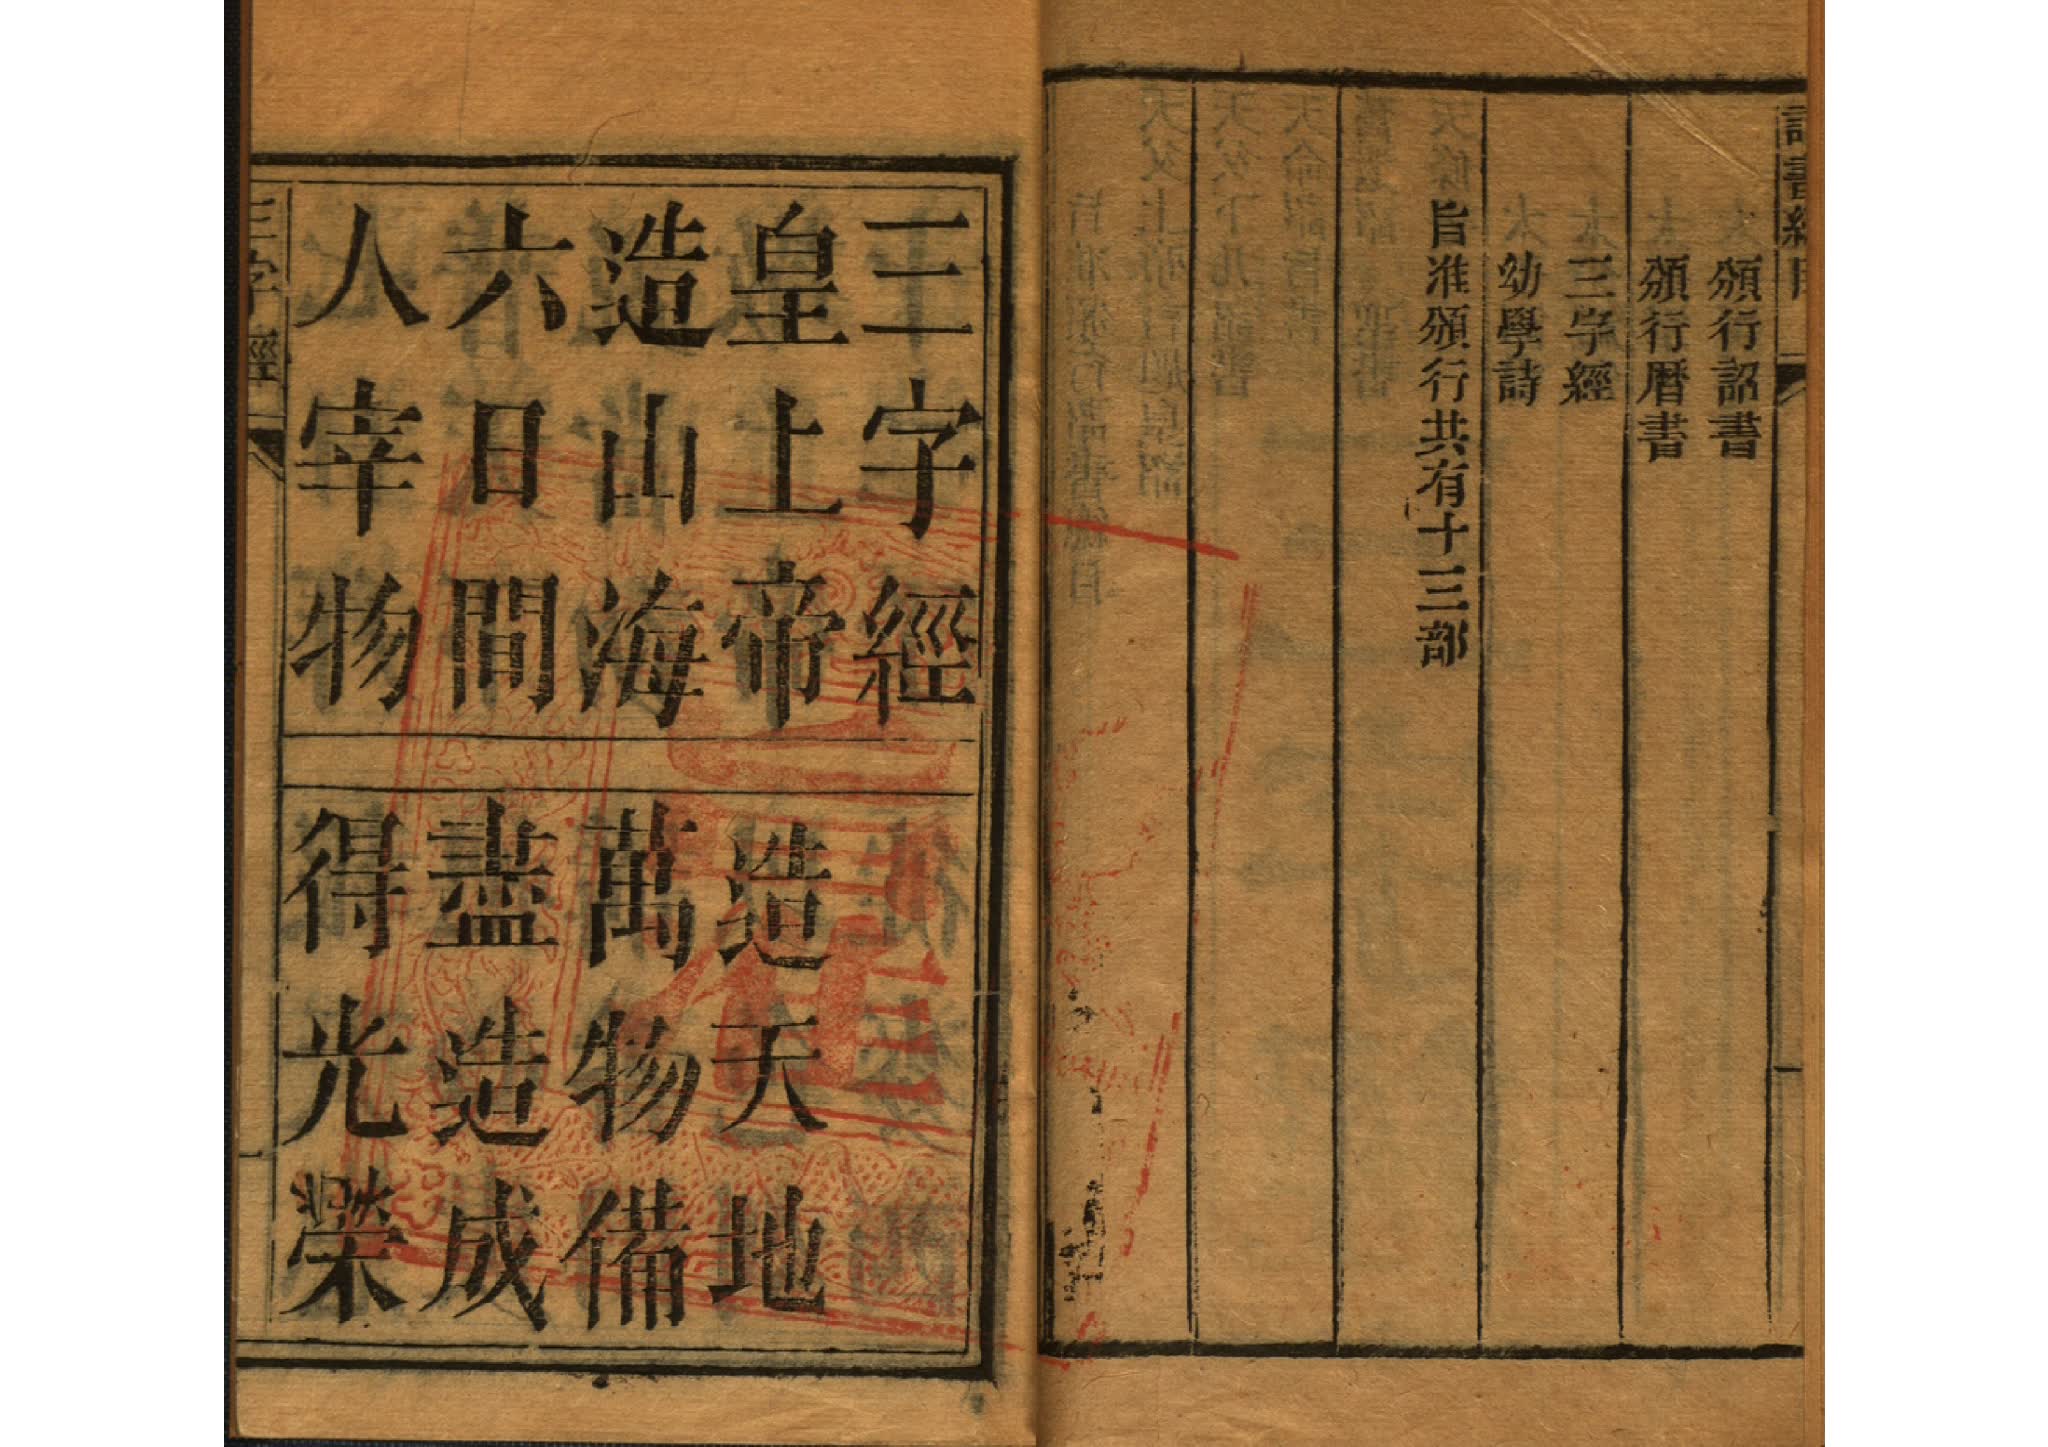 詔書總目
頒行詔書
頒行曆書
三字經
幼學詩
旨准頒行共有十三部
三字經
皇上帝
造天地
造山海
萬物備
六日間
盡造成
人宰物
得光榮
三字經
一